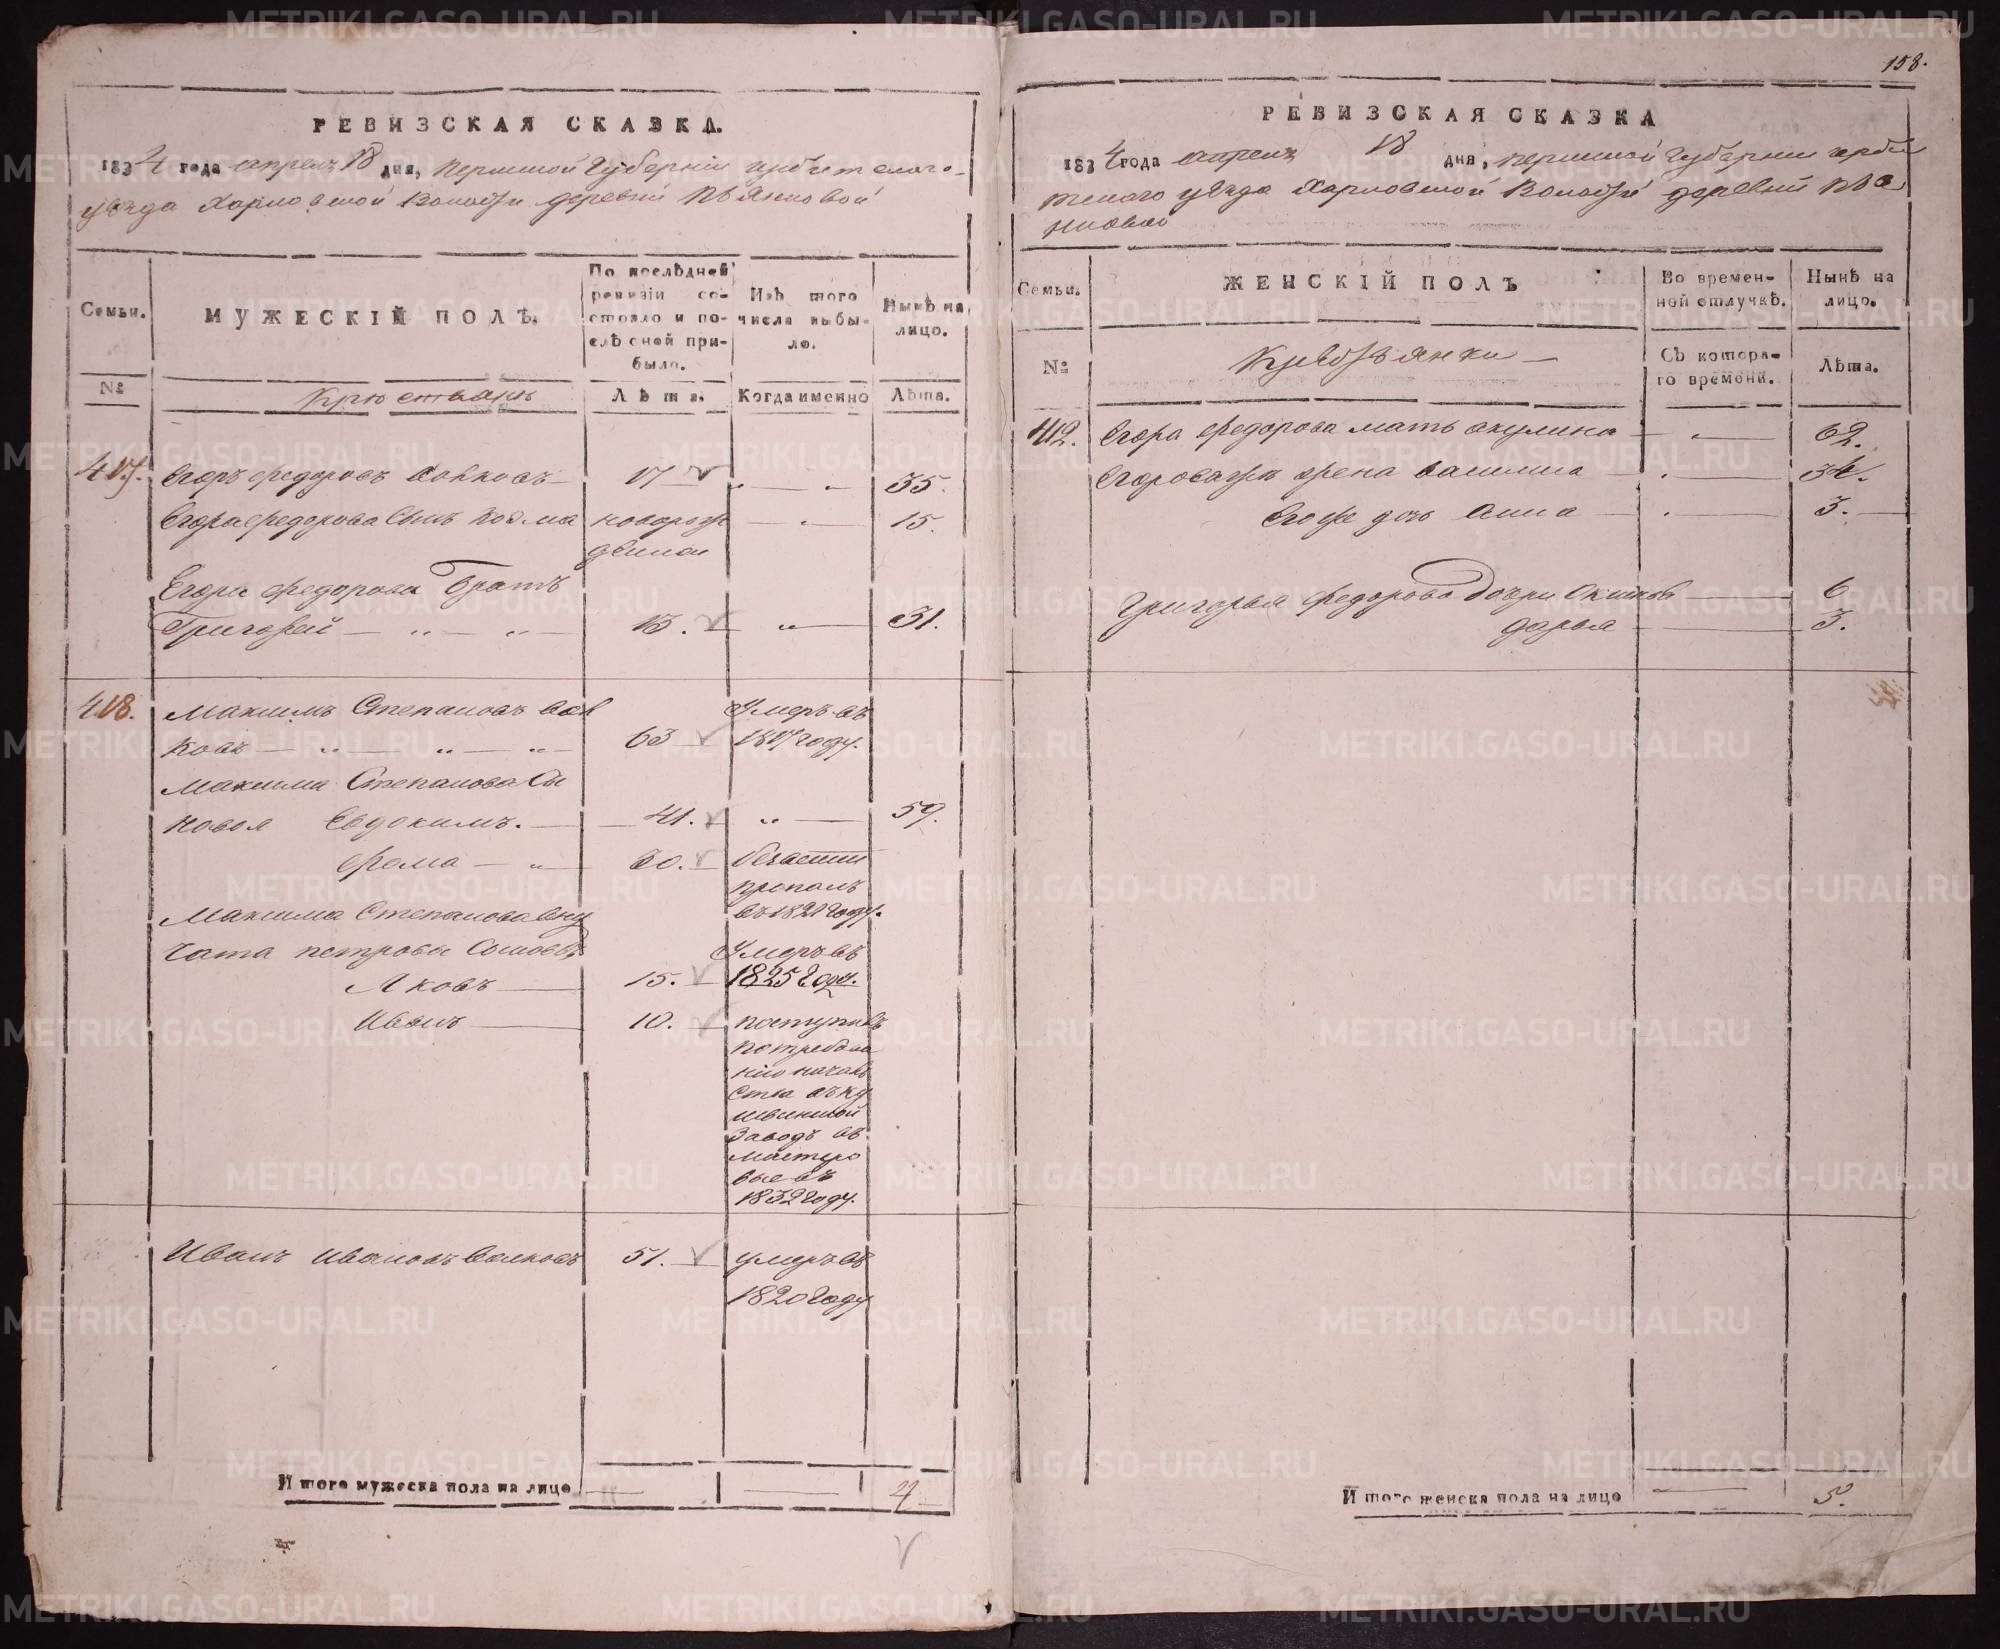 158.
РЕВИЗСКАЯ СКАЗКА.
1834 года апреля 18 дня, пермской Губернии ирбитскаго
уезда Харловской Волости деревни
Семьи.
МУЖЕСКІЙ ПОЛЪ.
По послѣдней ревизіи состояло и послѣ оной прибыло.
Изъ того числа выбыло.
Нынѣ на лицо.
№
Крестьяне
Лѣта.
Когда именно
Лѣта.
417. Егоръ федоровъ Волковъ 17 35.
Егора федорова Сынъ Козма новорож 15.
денной
Егора федорова Братъ
Григорей 13. 31.
418. Максимъ Степановъ Вол Умеръ въ
ковъ 63 1817 году.
Максима Степанова Сы
новья Евдокимъ. 41. 59.
фома 30. безвестно
пропалъ
въ 1821 году.
Максима Степанова вну
чата петровы Сыновья Умеръ въ
Яковъ 15. 1825 году.
Иванъ 10. поступилъ
по требова
нію началь
ства въ ку
швинской
Заводъ въ
мастеро
вые въ
1832 году.
Иванъ Ивановъ Волковъ 51. умеръ въ
1820 году
Итого мужеска пола на лицо 4
РЕВИЗСКАЯ СКАЗКА
1834 года апреля 18 дня, пермской Губернии ирби
тскаго уезда Харловской Волости деревни
Семьи.
ЖЕНСКІЙ ПОЛЪ
Во временной отлучкѣ.
Нынѣ на лицо.
№
Крестьянки
Съ котораго времени.
Лѣта.
412. Егора федорова мать акулина 62.
Егорова жена
34.
Егоже дочь Анна 3.
Григорья федорова дочери 6
дарья 3.
Итого женска пола на лицо 5.
METRIKI.GASO-URAL.RU